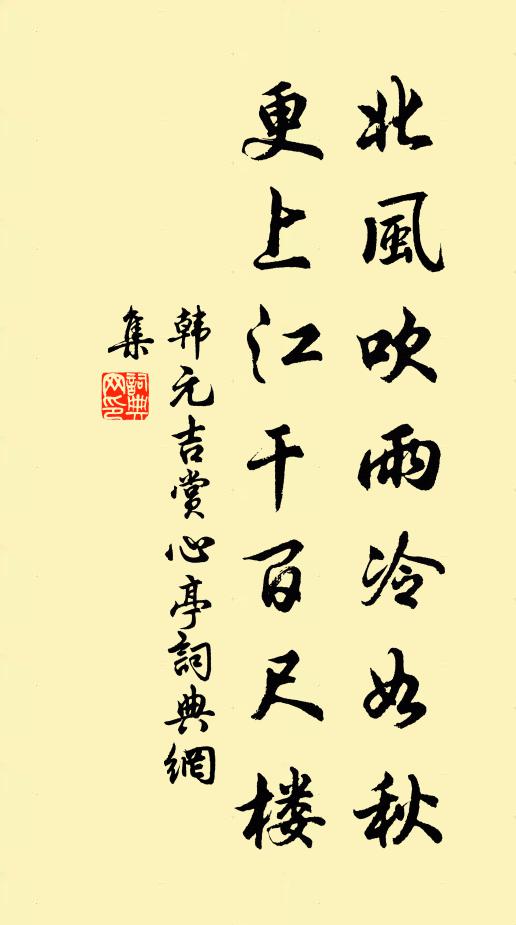 北風吹雨冷如秋
更上江干百尺楼
韩元吉赏心亭詞典網
集
詞典网印